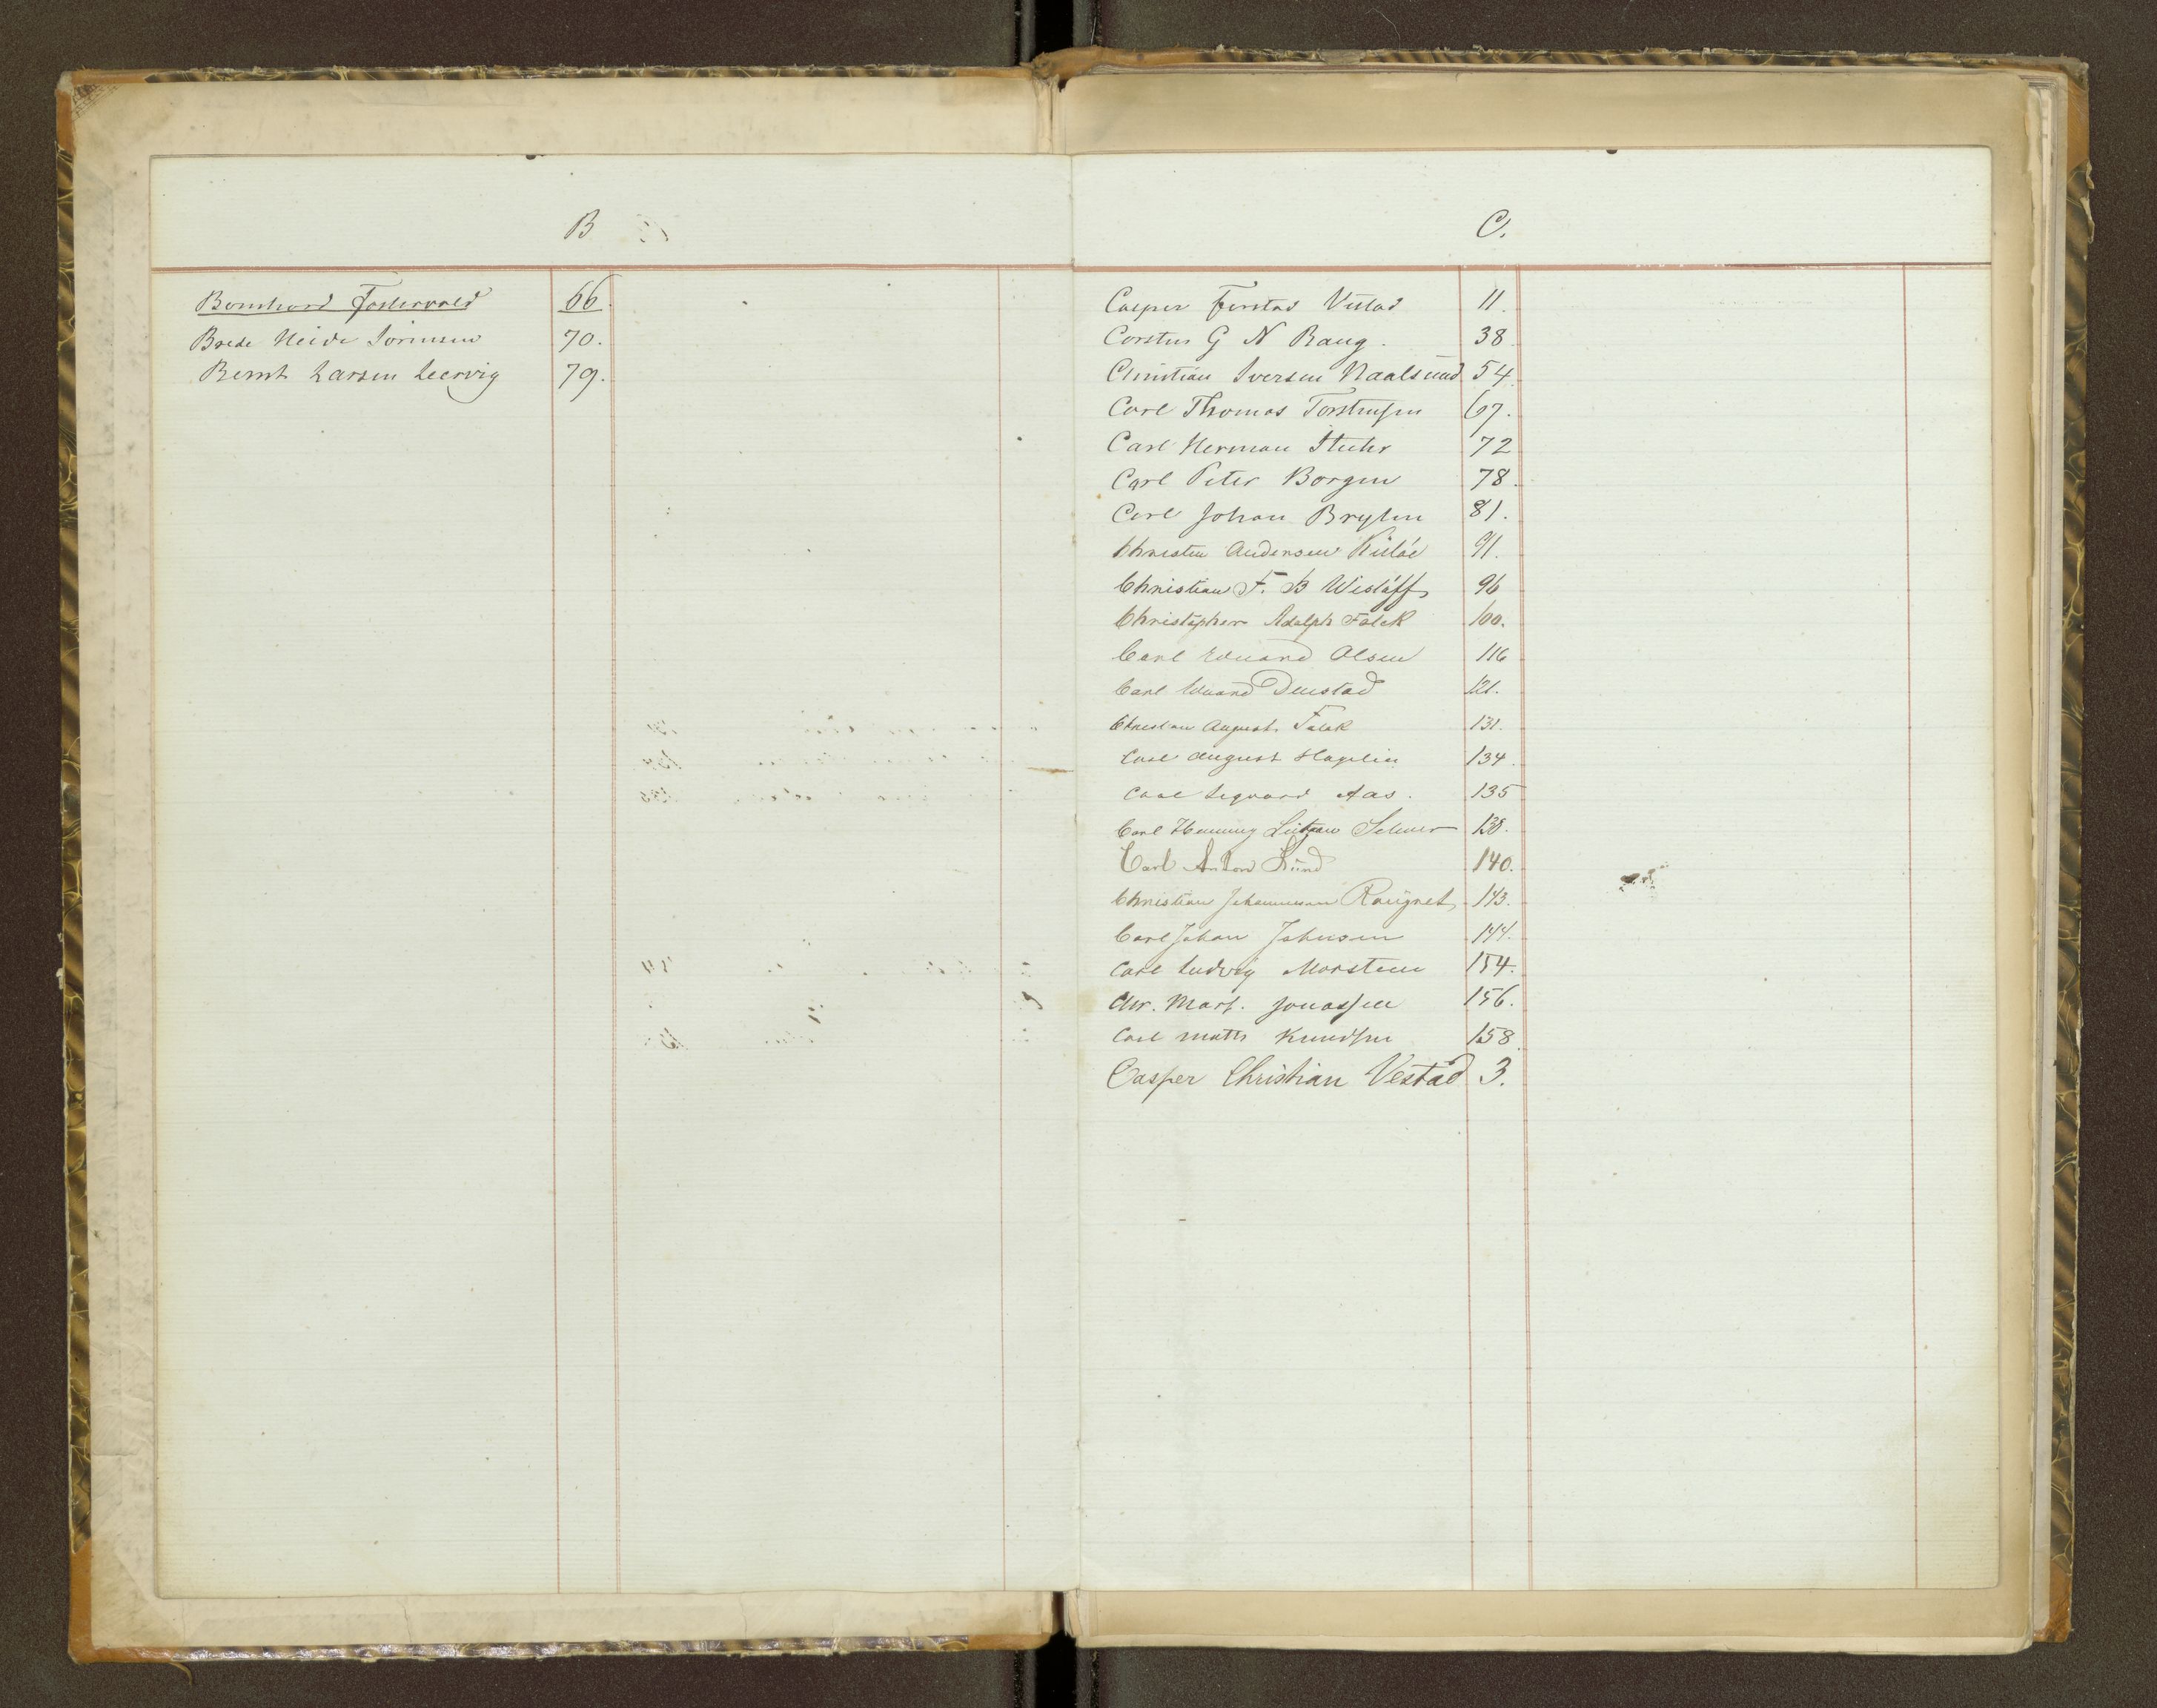 B
Bernhard Fostervold 66.
Brede Heide Sörensen 70.
Bernt Larsen Leervig 79.
C.
Casper Ferstad Vestad 11.
Corstus G N Baug. 38.
Christian Iversen Naalsund 54.
Carl Thomas Torstensen 67.
Carl Herman Stuhr 72
Carl Peter Borgen 78.
Carl Johan Brylen 81.
Christen Andersen 91.
Christian F. B Wislöff 96
Christopher Adolph Falck 100.
Carl Eduard Olsen 116
Carl Eduard Deustad 121.
Christian August Falck 131.
Carl August Hagelin 134.
Carl Seqvard Aas. 135
Carl Henning Lützow 138.
Carl Anton Lünd 140.
Christian Johannesen 143.
Carl Johan Johnsen 144.
Carl Ludvig Morsteen 154.
Chr. Mart. Jonassen 156.
Carl Knudsen 158.
Casper Christian Vestad 3.